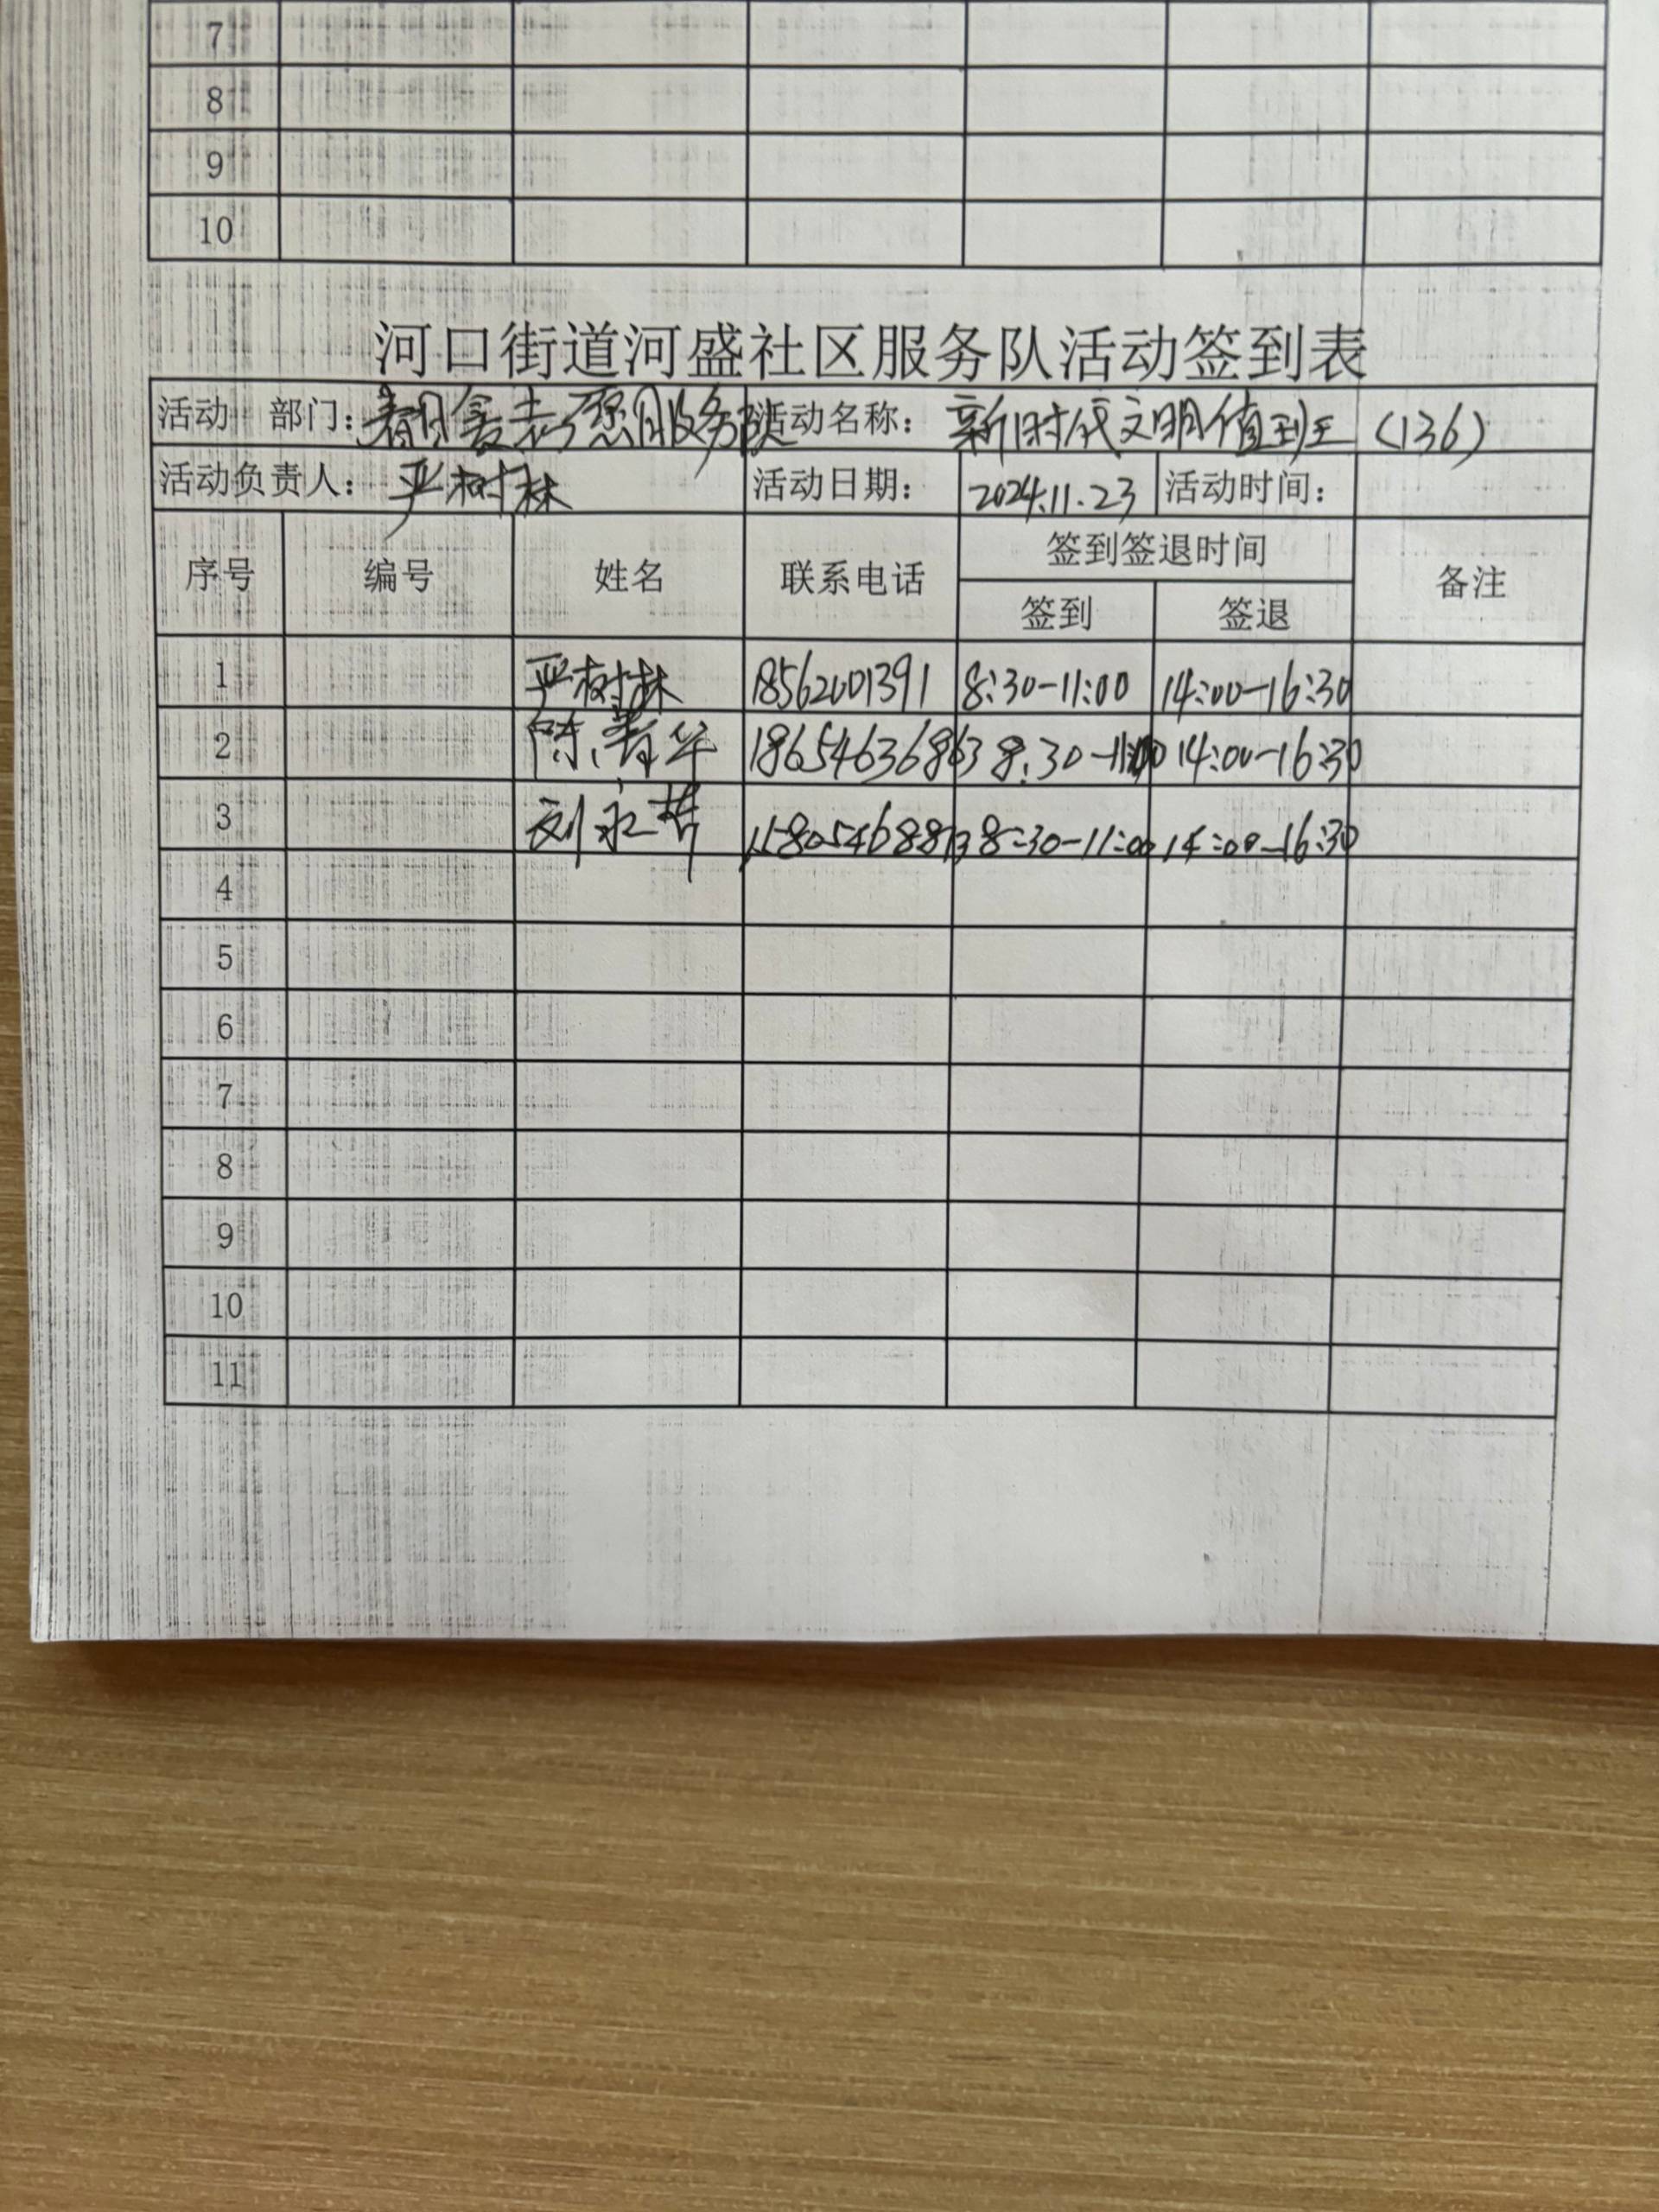 7
8
9
10
河口街道河盛社区服务队活动签到表
活动 部门： 志愿服务队 活动名称： 新时代文明值班 (136)
活动负责人： 严树林 活动日期： 2024.11.23 活动时间：
序号 编号 姓名 联系电话 签到签退时间 备注
签到 签退
1 严树林 18562001391 8:30-11:00 14:00-16:30
2 陈青华 18654636863 8:30-11:00 14:00-16:30
3 刘永哲 15805468813 8:30-11:00 14:00-16:30
4
5
6
7
8
9
10
11